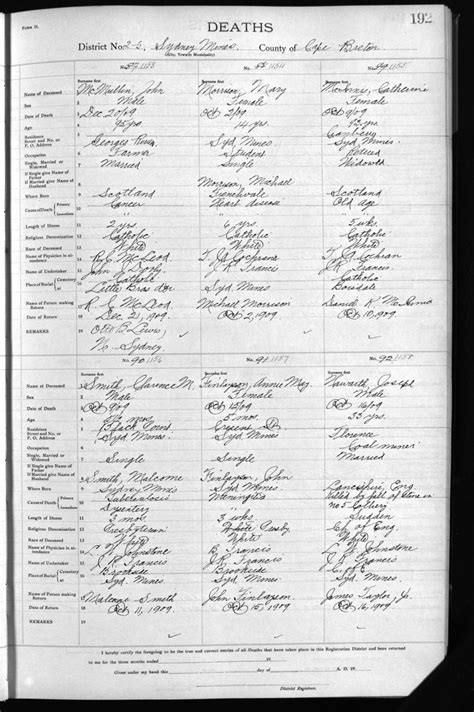 Form D.
192
DEATHS
District No. 25, Sydney Mines. County of Cape Breton
(City, Town or Municipality)
No. 87 1153 No. 88 1154 No. 89 1155
Surname first Surname first Surname first
Name of Deceased 1 McMullin, John Morrison, Mary Catherine
Sex 2 Male Female Female
Date of Death 3 Dec 20/09 Oct 2/09 Oct 9/09
Age 4 95 yrs. 14 yrs. 92 yrs.
Residence
Street and No. or
P. O. Address 5 Georges River Syd. Mines Syd. Mines.
Occupation 6 Farmer Student Retired
Single, Married or
Widowed 7 Married Single Widowed
If Single give Name of
Father
If Married give Name of
Husband 8 Morrison, Michael
Where Born 9 Scotland Scotland
Cause of Death Primary Immediate 10 Cancer Heart disease Old age
Length of Illness 11 2 yrs. 6 yrs. 5 wks.
Religious Denomination 12 Catholic Catholic Catholic
Race of Deceased 13 White White White
Name of Physician in attendance 14 R. E. McLeod T. J. Cochrane T. J. Cochran
Name of Undertaker 15 John J. J. R. Francis J. R. Francis
Place of Burial 16 Catholic Little Bras d'or Syd. Mines Catholic Boisdale
Name of Person making
Return 17 R. E. McLeod Michael Morrison
Date of Return 18 Dec 21, 1909. Oct 2, 1909 Oct 10, 1909
REMARKS 19 Otto B. Lewis,
N. Sydney.
No. 90 1156 No. 91 1157 No. 92 1158
Surname first Surname first Surname first
Name of Deceased 1 Smith, Clarence M. Finlayson, Annie May Haworth, Joseph
Sex 2 Male Female Male
Date of Death 3 Oct 9/09 Oct 15/09 Oct 16/09
Age 4 mos. 5 mos. 33 yrs.
Residence
Street and No. or
P. O. Address 5 Syd. Mines. Syd. Mines Florence
Occupation 6 Coal miner
Single, Married or
Widowed 7 Single Single Married
If Single give Name of
Father
If Married give Name of
Husband 8 Smith, Malcome Finlayson, John
Where Born 9 Sydney Mines Syd. Mines Lancashire, Eng.
Cause of Death Primary Immediate 10 Tuberculosis Meningitis Killed by fall of stone in
Dysentery No 5 Colliery
Length of Illness 11 3 mos. 3 wks. Sudden
Religious Denomination 12 Presbyterian Presby. Ch. of Eng.
Race of Deceased 13 White White White
Name of Physician in attendance 14 Johnstone Francis Johnstone
Name of Undertaker 15 J. R. Francis J. R. Francis J. R. Francis
Place of Burial 16 Brookside Brookside C. of E.
Syd. Mines Syd. Mines Syd. Mines.
Name of Person making
Return 17 Malcome Smith John Finlayson James Taylor, Jr.
Date of Return 18 Oct 11, 1909. Oct 15, 1909 Oct 16, 1909
REMARKS 19
I hereby certify the foregoing to be the true and correct entries of all Deaths that have taken place in this Registration District and been returned
to me for the three months ended
Given under my hand this day of A. D. 19
District Registrar.